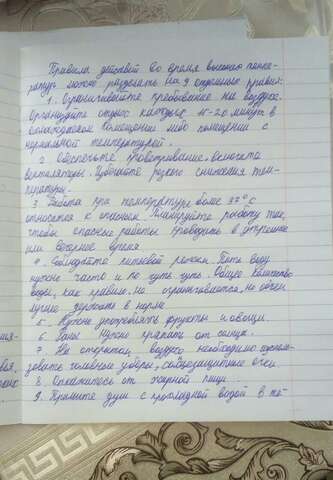 Правила действий во время высоких темпе-
ратур можно разделить на 9 отдельных правил:
1. Ограничивайте пребывание на воздухе.
Организуйте отдых каждые 15-20 минут в
охлаждаемом помещении либо помещении с
нормальной температурой.
2. Обеспечьте проветривание. Включите
вентиляторы. Избегайте резкого снижения тем-
пературы.
3. Работа при температуре более 32°С
относится к опасным. Планируйте работу так,
чтобы опасные работы проводить в утреннее
или вечернее время.
4. Соблюдайте питьевой режим. Пить воду
нужно часто и по чуть чуть. Общее количество
воды, как правило, не ограничивается, но объем
лучше держать в норме.
5. Нужно употреблять фрукты и овощи.
6. Глаза нужно прятать от солнца.
7. На открытом воздухе необходимо исполь-
зовать головные уборы, солнцезащитные очки
8. Откажитесь от жирной пищи.
9. Примите душ с прохладной водой в те-